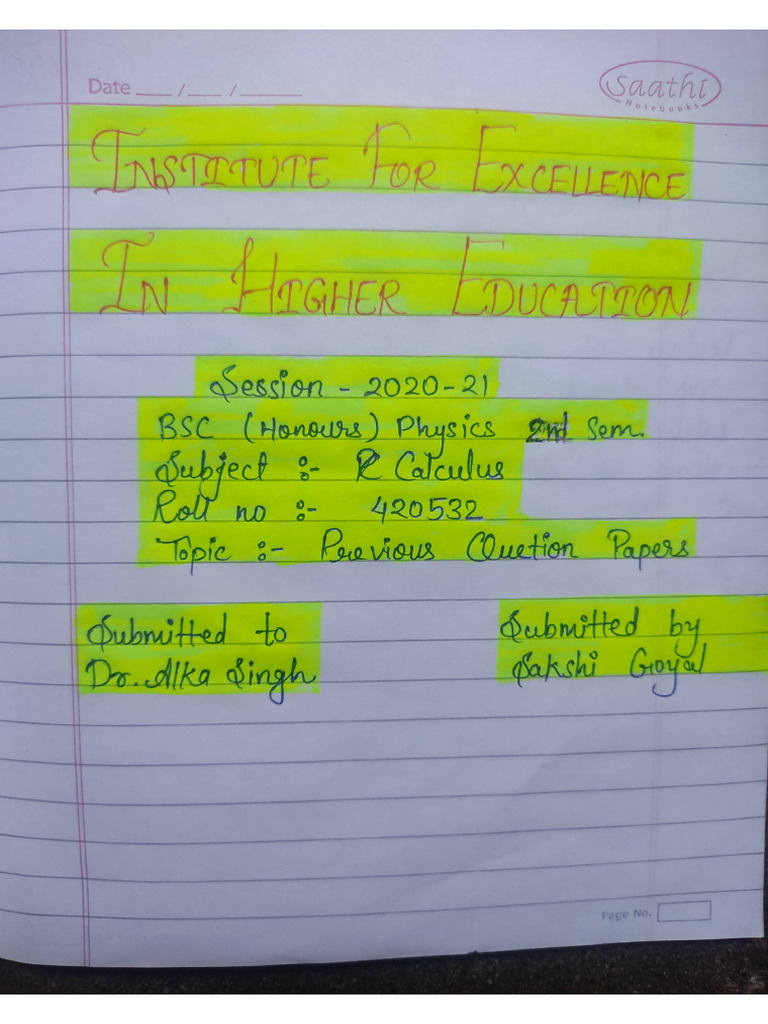 Date ___ / ___ / _____
Saathi
Notebooks
INSTITUTE FOR EXCELLENCE
IN HIGHER EDUCATION
Session - 2020-21
BSC (Honours) Physics 2nd Sem.
Subject :- Calculus
Roll no :- 420532
Topic :- Previous Quetion Papers
Submitted to
Dr. Alka Singh
Submitted by
Sakshi Goyal
Page No.